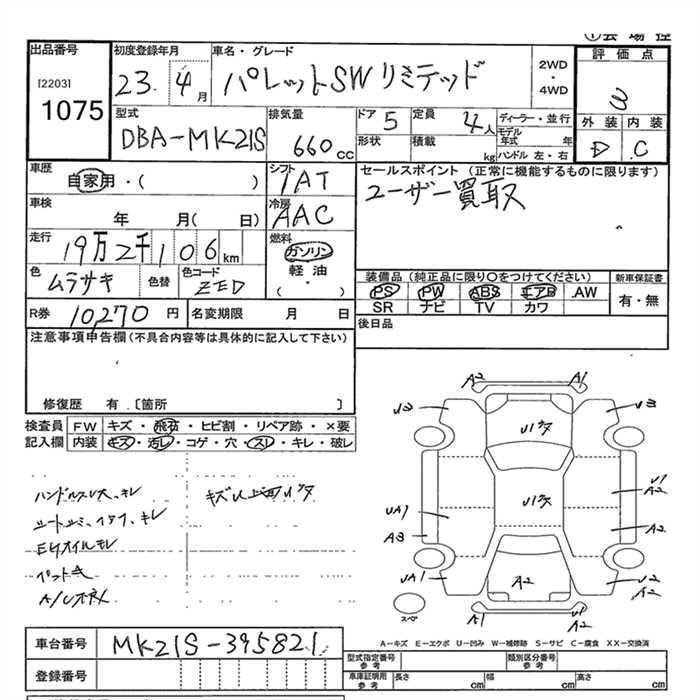 出品番号
[2203]
1075
初度登録年月
23. 4月
車名・グレード
パレットSWリミテッド
2WD・4WD
評価点
3
型式
DBA-MK21S
排気量
660cc
ドア 5
定員 4人
形状
積載 kg
ディーラー・並行
モデル年式 年
ハンドル 左・右
外装 内装
D .C
車歴
自家用・( )
シフト
IAT
セールスポイント (正常に機能するものに限ります)
ユーザー買取
車検 年 月( 日)
冷房
AAC
走行
19万2千106km
燃料
ガソリン・軽油・( )
色
ムラサキ
色替
色コード
ZED
装備品(純正品に限り○をつけてください)
PS PW ABS エアB .AW
SR ナビ TV カワ
新車保証書
有・無
R券 10,270円
名変期限 月 日
後日品
注意事項申告欄(不具合内容等は具体的に記入して下さい)
修復歴 有.〔箇所 〕
検査員記入欄
FW キズ・飛石・ヒビ割・リペア跡・×要
内装 キズ・汚レ・コゲ・穴・スレ・キレ・破レ
ハンドルスレ大、キレ
EGオイルモレ
A2 A1
U2 U3
U1キズ
U1 A2
UA1
A3 A2
UA1 A2 U2 A2
A1 A2
スペア
A-キズ E-エクボ U-凹み W-補修跡 S-サビ C-腐食 XX-交換済
車台番号 MK21S-395821
登録番号
型式指定番号 参考
類別区分番号 参考
車庫証明用 参考 長さ cm 幅 cm 高さ cm